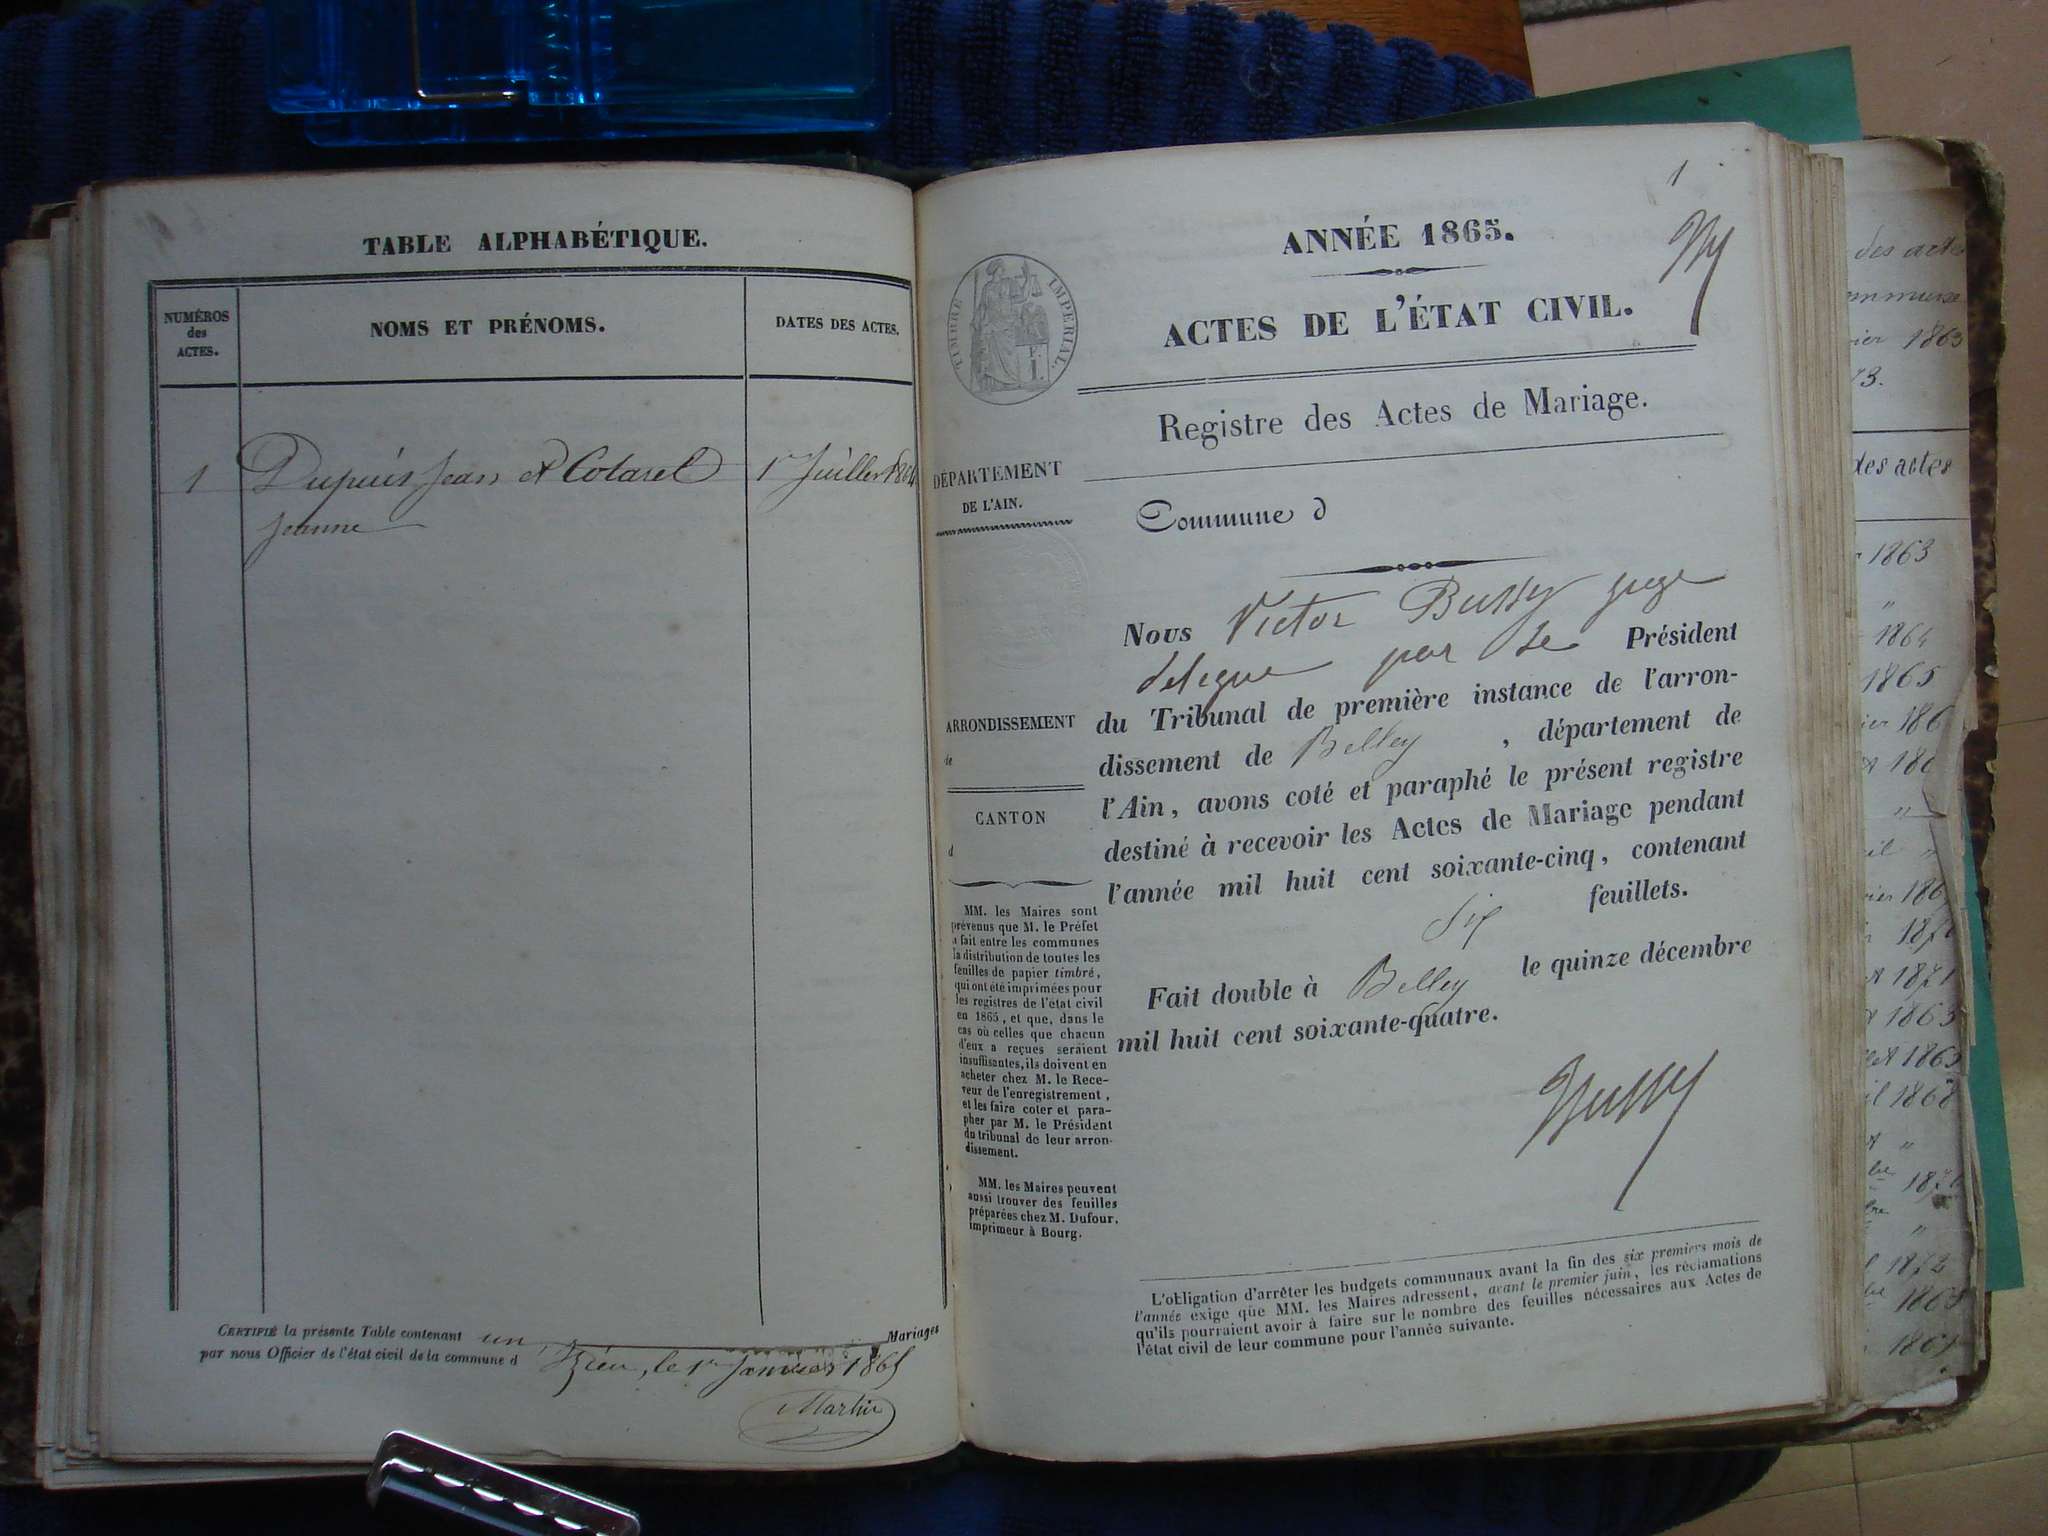 TABLE ALPHABÉTIQUE.
NUMÉROS
des
ACTES.
NOMS ET PRÉNOMS.
DATES DES ACTES.
1 Dupuis Jean et Cotarel 1er Juillet 1864
Jeanne
CERTIFIÉ la présente Table contenant un Mariages
par nous Officier de l'état civil de la commune d'Izieu, le 1er Janvier 1865
Martin
1
ANNÉE 1865.
TIMBRE IMPÉRIAL.
ACTES DE L'ÉTAT CIVIL.
Registre des Actes de Mariage.
DÉPARTEMENT
DE L'AIN.
Commune d
Nous Victor Bussy juge
delegue par le Président
du Tribunal de première instance de l'arron-
dissement de Belley, département de
l'Ain, avons coté et paraphé le présent registre
destiné à recevoir les Actes de Mariage pendant
l'année mil huit cent soixante-cinq, contenant
six feuillets.
Fait double à Belley le quinze décembre
mil huit cent soixante-quatre.
Bussy
ARRONDISSEMENT
de
CANTON
d
MM. les Maires sont
prévenus que M. le Préfet
a fait entre les communes
la distribution de toutes les
feuilles de papier timbré,
qui ont été imprimées pour
les registres de l'état civil
en 1865, et que, dans le
cas où celles que chacun
d'eux a reçues seraient
insuffisantes, ils doivent en
acheter chez M. le Rece-
veur de l'enregistrement,
et les faire coter et para-
pher par M. le Président
du tribunal de leur arron-
dissement.
MM. les Maires peuvent
aussi trouver des feuilles
préparées chez M. Dufour,
imprimeur à Bourg.
L'obligation d'arrêter les budgets communaux avant la fin des six premiers mois de
l'année exige que MM. les Maires adressent, avant le premier juin, les réclamations
qu'ils pourraient avoir à faire sur le nombre des feuilles nécessaires aux Actes de
l'état civil de leur commune pour l'année suivante.
des actes
1863
des actes
1863
1864
1865
1871
1863
1868
1872